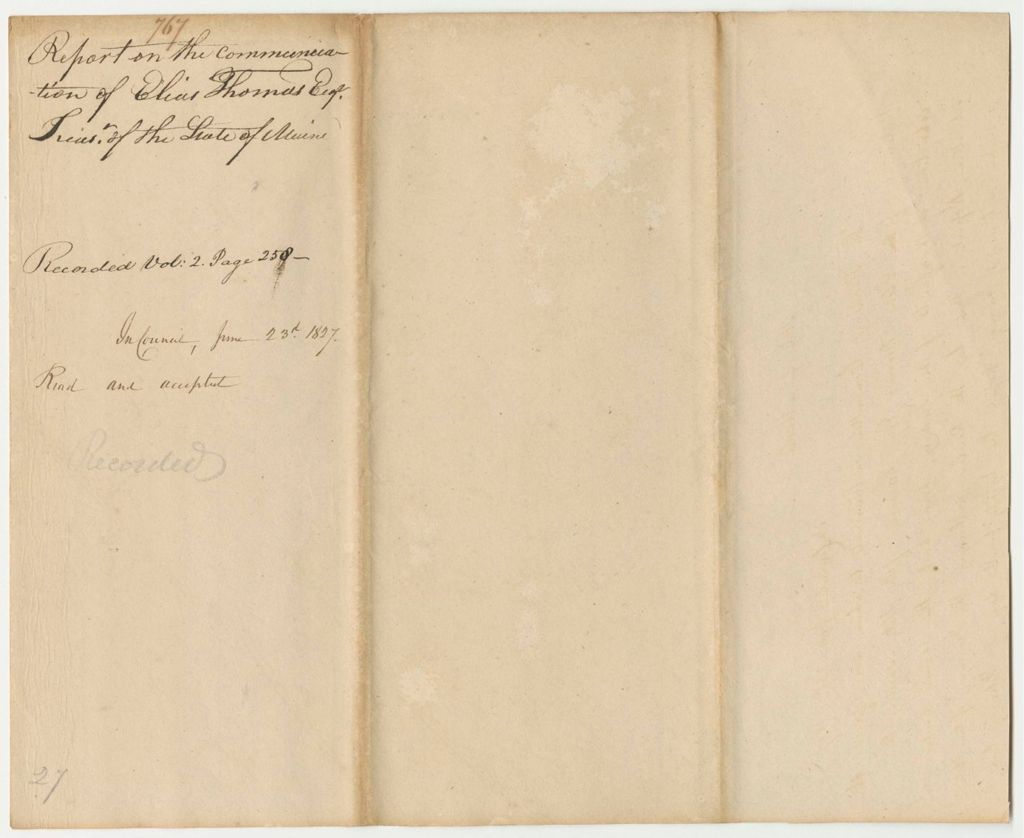 767
Report on the communica-
-tion of Elias Thomas Esqr.
Treasr. of the State of Maine
Recorded Vol: 2. Page 258-
In Council, June 23d 1827.
Read and accepted
Recorded
27